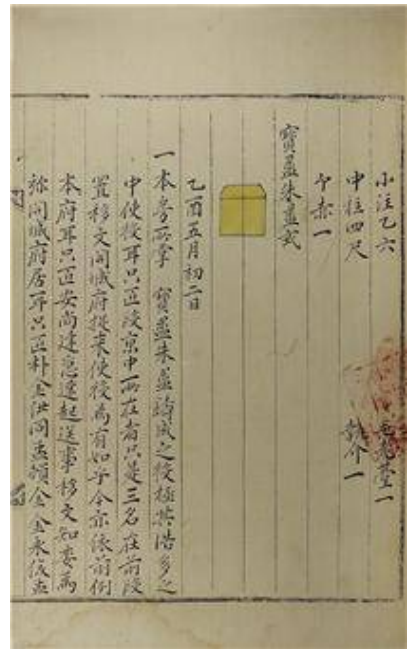 小注乙六
中柱四尺
亇赤一
執介一
寶盝朱盝式
乙酉五月初二日
一本房所掌 寶盝朱盝鑄成之役極其浩多之
中使役耳只匠段京中所在者只是三名在前段
置移文開城府捉來使役爲有如乎今亦依前例
本府耳只匠安尙達急速起送事移文知委爲
弥開城府居耳只匠朴金世同孟碩金金永俊孟